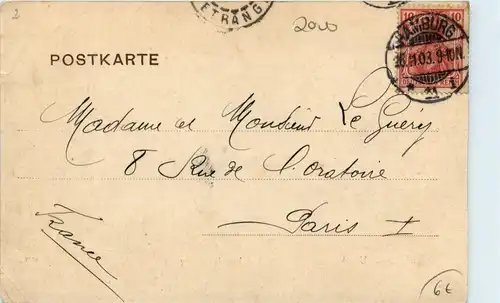 2
ETRANG
2000
10 10
HAMBURG
POSTKARTE
.11.03. 9-10N
* 11 *
Madame et Monsieur Le Guery
8 Rue de l'oratoire
Paris I
France
6€